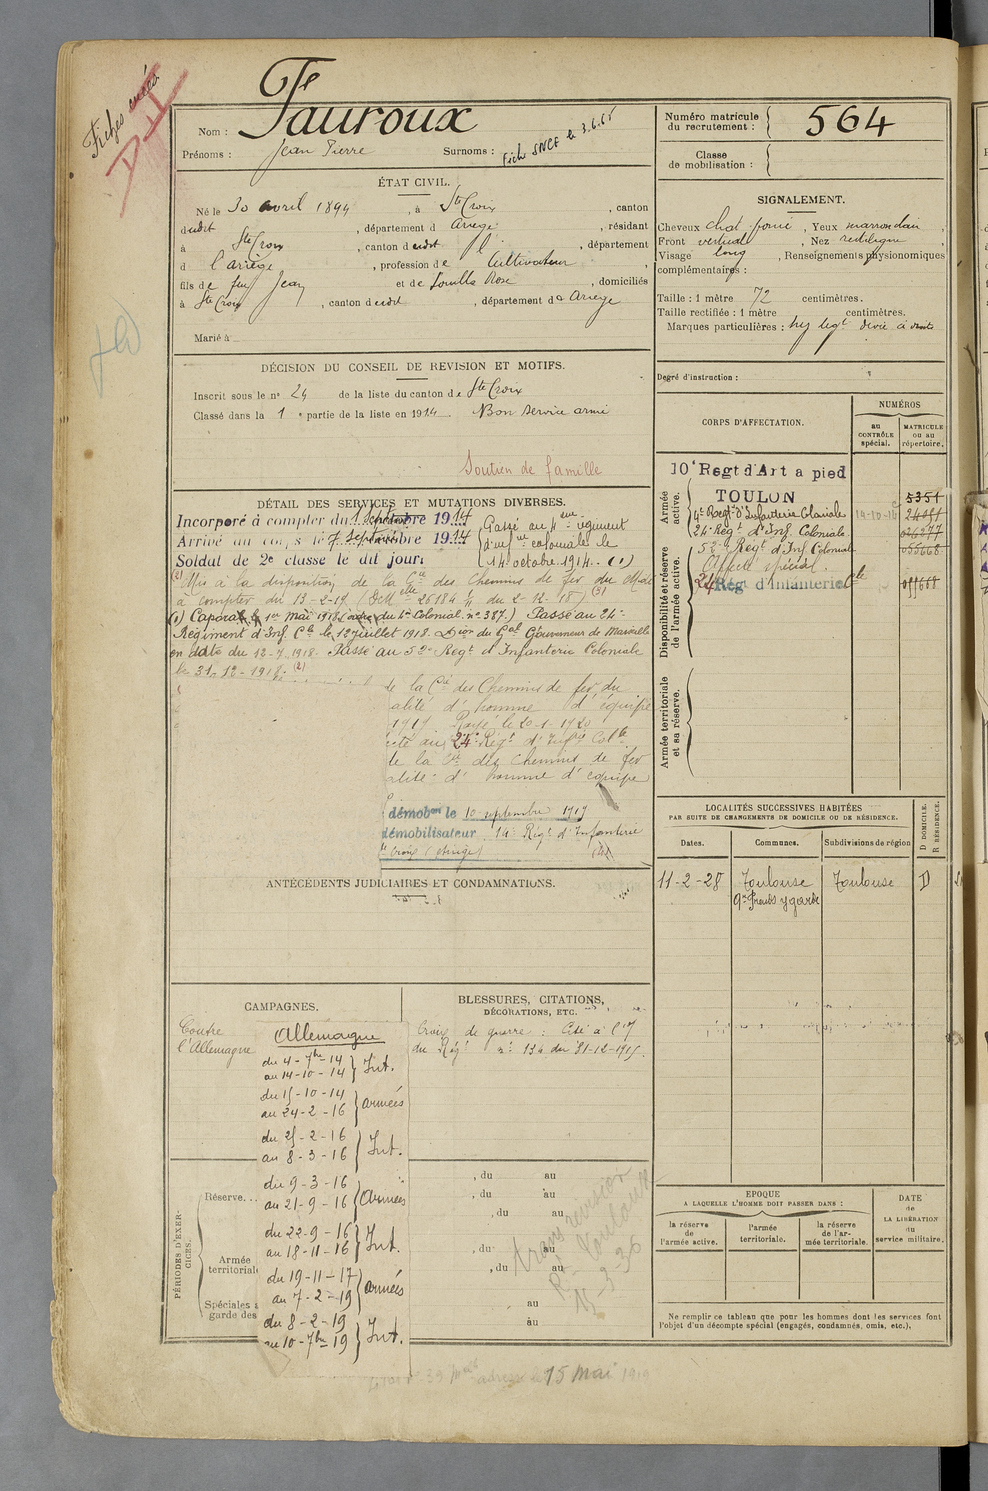 Fiches
Fauroux
Nom :
Prénoms : Jean Pierre Surnoms :
Fiche SNCF le 3.6.65
ÉTAT CIVIL.
Né le 30 avril 1894, à Ste Croix, canton
dudit, département d Ariège, résidant
à Ste Croix, canton dudit, département
d l'ariège, profession de Cultivateur
fils de feu Jean et de Rose, domiciliés
à Ste Croix, canton dudit, département de Ariège
Marié à
DÉCISION DU CONSEIL DE REVISION ET MOTIFS.
Inscrit sous le n° 24 de la liste du canton de Ste Croix
Classé dans la 1e partie de la liste en 1914 Bon service armé
Soutien de famille
DÉTAIL DES SERVICES ET MUTATIONS DIVERSES.
Incorporé à compter du 1 Septembre 1914
Arrivé au corps le 7 Septembre 1914
Soldat de 2e classe le dit jour
Passé au 4eme régiment
d'infie coloniale le
14 octobre 1914. (1)
(2) Mis à la disposition de la Cie des Chemins de fer du Midi
à compter du 13-2-19 (D Mlle 26184 du 2-12-18) (3)
(1) Caporal le 1er mai 1918 (ordre du 4e Colonial n° 387.) Passé au 24e
Régiment d'Inf. Cle le 12 juillet 1918. Don du Gal Gouverneur de Marseille
en date du 12-7-1918. Passé au 52e Regt d'Infanterie Coloniale
le 31-12-1918. (2)
de la Cie des Chemins de fer du
alité d'homme d'équipe
1919 Rayé le 20-1-1920
cté au 24e Regt d'Infie Colle
de la Cie des Chemins de fer
alité d'homme d'équipe
démobon le 10 septembre 1919
démobilisateur 14e Régt d'Infanterie
te Croix (Ariège)
ANTÉCÉDENTS JUDICIAIRES ET CONDAMNATIONS.
CAMPAGNES.
Contre
l'Allemagne
Allemagne
du 4-7bre-14
au 14-10-14 } Int.
du 15-10-14
au 24-2-16 } armées
du 25-2-16
au 8-3-16 } Int.
du 9-3-16
au 21-9-16 } Armées
du 22-9-16
au 18-11-16 } Int.
du 19-11-17
au 7-2-19 } armées
du 8-2-19
au 10-7bre 19 } Int.
BLESSURES, CITATIONS,
DÉCORATIONS, ETC.
Croix de guerre : Cité à l'
du Régt n° 134 du 31-12-1915.
PÉRIODES D'EXERCICES.
Réserve...
Armée
territorial
Spéciales a
garde des
, du au
, du au
, du au
, du au
, du au
au
au
trans révision
Toulouse
15-3-36
adressé le 15 Mai 1919
Numéro matricule
du recrutement : 564
Classe
de mobilisation :
SIGNALEMENT.
Cheveux chat. foncé, Yeux marron clair,
Front vertical, Nez rectiligne,
Visage long, Renseignements physionomiques
complémentaires :
Taille : 1 mètre 72 centimètres.
Taille rectifiée : 1 mètre centimètres.
Marques particulières : nez légt dévié à droite
Degré d'instruction :
CORPS D'AFFECTATION.
NUMÉROS
au
CONTRÔLE
spécial.
MATRICULE
ou au
répertoire.
Armée
active.
10e Regt d'Art a pied
TOULON 5351
4e Regt d'Infanterie Coloniale 14-10-14
24e Régt d'Inf. Coloniale
Disponibilité et réserve
de l'armée active.
52e Régt d'Inf Coloniale 055668
Affecté spécial.
24 Rég d'Infanterie Cle 055668
Armée territoriale
et sa réserve.
LOCALITÉS SUCCESSIVES HABITÉES
PAR SUITE DE CHANGEMENTS DE DOMICILE OU DE RÉSIDENCE.
Dates. Communes. Subdivisions de région
D DOMICILE.
R RÉSIDENCE.
11-2-28 Toulouse Toulouse D
EPOQUE
A LAQUELLE L'HOMME DOIT PASSER DANS :
la réserve
de
l'armée active.
l'armée
territoriale.
la réserve
de l'ar-
mée territoriale.
DATE
de
LA LIBÉRATION
du
service militaire.
Ne remplir ce tableau que pour les hommes dont les services font
l'objet d'un décompte spécial (engagés, condamnés, omis, etc.).